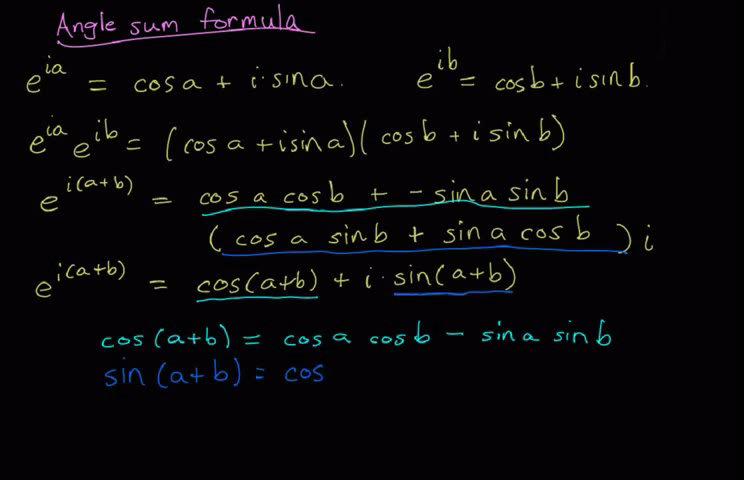 Angle sum formula
e^{ia} = cos a + i · sin a. e^{ib} = cos b + i sin b.
e^{ia} e^{ib} = (cos a + i sin a)(cos b + i sin b)
e^{i(a+b)} = cos a cos b + - sin a sin b
(cos a sin b + sin a cos b) i
e^{i(a+b)} = cos(a+b) + i · sin(a+b)
cos (a+b) = cos a cos b - sin a sin b
sin (a+b) = cos